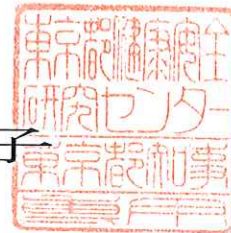 東京都健康安全
研究センター
子
東京都知事